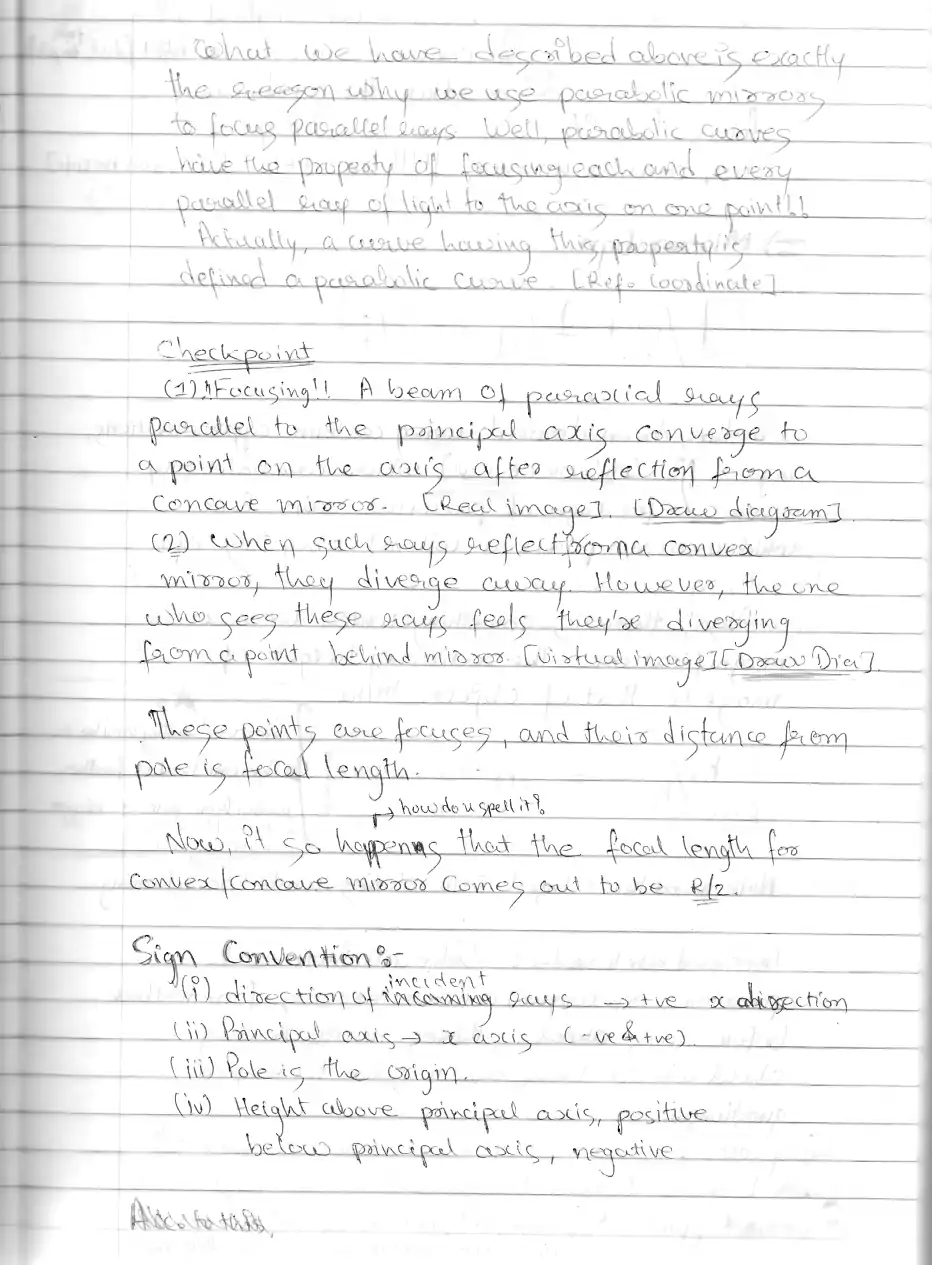 What we have described above is exactly
the reason why we use parabolic mirrors
to focus parallel rays. Well, parabolic curves
have the property of focusing each and every
parallel ray of light to the axis on one point!!
Actually, a curve having this, property is
defined a parabolic curve. [Ref. Coordinate]
Checkpoint
(1) !!Focusing!! A beam of paraxial rays
parallel to the principal axis converge to
a point on the axis after reflection from a
concave mirror. [Real image]. [Draw diagram]
(2) When such rays reflect from a convex
mirror, they diverge away. However, the one
who sees these rays feels they're diverging
from a point behind mirror. [Virtual image] [Draw Dia]
These points are focuses, and their distance from
pole is focal length.
→ how do u spell it?
Now, it so happens that the focal length for
convex/concave mirror comes out to be R/2.
Sign Convention:-
incident
(i) direction of incoming rays → +ve x direction
(ii) Principal axis → x axis (-ve & +ve).
(iii) Pole is the origin.
(iv) Height above principal axis, positive
below principal axis, negative.